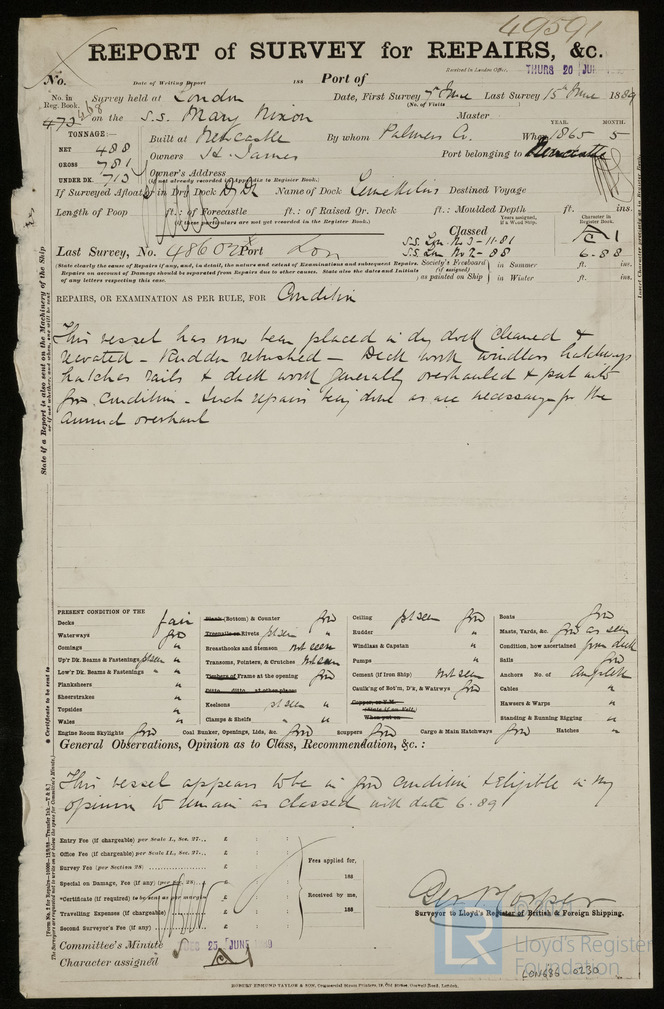 49591
REPORT of SURVEY for REPAIRS, &c.
No. Date of Writing Report 188 Port of Received in London Office, THURS 20 JUN
No. in Reg. Book. Survey held at London Date, First Survey 7th June Last Survey 15th June 1889
(No. of Visits
668
472 on the S.S. Mary Nixon Master
TONNAGE:— YEAR. MONTH.
NET 488 Built at Newcastle By whom Palmers Co. When 1865 5
GROSS 781 Owners H. James Port belonging to Newcastle
UNDER DK. 713 Owner's Address
(if not already recorded in Appendix to Register Book.)
If Surveyed Afloat or in Dry Dock D Dk Name of Dock Limekilns Destined Voyage
Length of Poop ft.: of Forecastle ft.: of Raised Qr. Deck ft.: Moulded Depth ft. ins.
(if these particulars are not yet recorded in the Register Book.)
Years assigned, if a Wood Ship. Character in Register Book.
Classed A 1
Last Survey, No. 48602 Port Lon S.S. Lon No 3-11.81
S.S. Lon No 2-88 6.88
(State clearly the cause of Repairs if any, and, in detail, the nature and extent of Examinations and subsequent Repairs. Society's Freeboard (if assigned) in Summer ft. ins.
Repairs on account of Damage should be separated from Repairs due to other causes. State also the dates and Initials of any letters respecting this case. as painted on Ship in Winter ft. ins.
REPAIRS, OR EXAMINATION AS PER RULE, FOR Condition
This vessel has now been placed in dry dock cleaned &
recoated - Rudder rebushed - Deck work windlass hatchways
hatches rails & deck work generally overhauled & put into
good condition - Such repairs being done as are necessary for the
annual overhaul
PRESENT CONDITION OF THE
Decks fair
Waterways good
Comings "
Up'r Dk. Beams & Fastenings pt seen "
Low'r Dk. Beams & Fastenings "
Planksheers "
Sheerstrakes "
Topsides "
Wales "
Plank (Bottom) & Counter good
Treenails or Rivets pt seen "
Breasthooks and Stemson not seen
Transoms, Pointers, & Crutches not seen
Timbers of Frame at the opening good
Ditto ditto at other places
Keelsons pt seen "
Clamps & Shelfs " "
Ceiling pt seen good
Rudder "
Windlass & Capstan "
Pumps "
Cement (if Iron Ship) not seen
Caulk'ng of Bot'm, D'k, & Watrwys good
Copper, or Y.M.
(State if on Felt)
When put on
Boats good
Masts, Yards, &c. good as seen
Condition, how ascertained from deck
Sails good
Anchors No. of Complete
Cables "
Hawsers & Warps "
Standing & Running Rigging "
Engine Room Skylights good Coal Bunker, Openings, Lids, &c. good Scuppers good Cargo & Main Hatchways good Hatches "
General Observations, Opinion as to Class, Recommendation, &c.:
This vessel appears to be in good condition & Eligible in my
opinion to remain as classed with date 6.89
Entry Fee (if chargeable) per Scale I., Sec. 27... £ : :
Office Fee (if chargeable) per Scale II., Sec. 27... £ : :
Survey Fee (per Section 28) £ : :
Special on Damage, Fee (if any) (per Sec. 28) £ : :
*Certificate (if required) to be sent as per margin £ : :
Travelling Expenses (if chargeable) £ : :
Second Surveyor's Fee (if any) £ : :
Fees applied for, 188
Received by me, 188
Surveyor to Lloyd's Register of British & Foreign Shipping.
Committee's Minute TUES 25 JUNE 1889
Character assigned A
ROBERT EDMUND TAYLOR & SON, Commercial Steam Printers, 19, Old Street, Goswell Road, London.
LR
Lloyd's Register
Foundation
LON686-0230
State if a Report is also sent on the Machinery of the Ship
* Certificate to be sent to